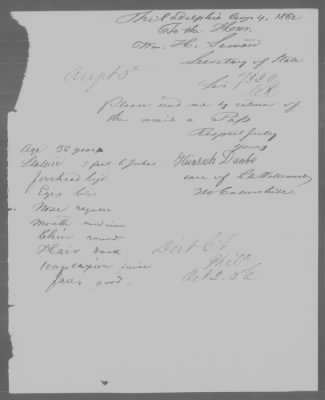 Philadelphia Aug 4, 1862
To the Honr.
Wm. H. Seward
Secretary of State
Sir
Augt 5
Please send me by return of
the mail a Pass
Respectfully
yours
Age 32 years
Stature 5 feet 6 Inches
forehead high
Eyes
Nose regular
Mouth medium
Chin round
Hair dark
Complexion
face good
care of
Dist Ct
Phila
Oct 2. 56